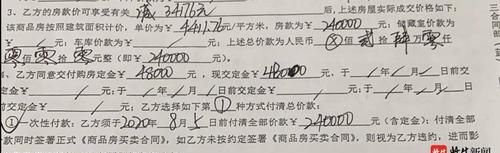 3、乙方的房款价可享受有关 减 34176元 后,上述房屋实际成交价格如下:
该商品房按照建筑面积计价,单价为¥ 4411.76 元/平方米,房款为¥ 240000 元;储藏室价款为
¥ / 元;车库价款为¥ / 元;上述总价款为人民币 ⊗ 佰 贰 拾 肆 万 零 仟
零 佰 零 拾 零 元整(即¥ 240000 元)。
乙方同意交付购房定金¥ 48000 元,现交定金¥ 48000 元,于 / 年 / 月 / 日前交
定金¥ / 元,于 / 年 / 月 / 日前交定金¥ / 元;乙方选择如下第 ① 种方式付清总价款:
①一次性付款:乙方须于 2020 年 8 月 5 日前付清全部价款¥ 240000 元(含定金);付清全部
款同时签署正式《商品房买卖合同》,乙方如未按约定签署《商品房买卖合同》,则视为乙方违约,进而影
三合同
四部